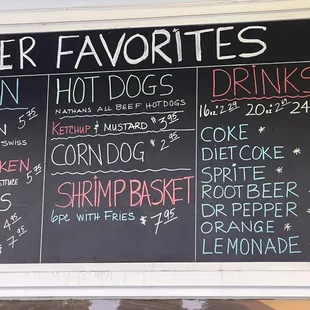 ER FAVORITES
N
N 5.35
SWISS
KEN
ETTUCE 5.35
S
$ 4.95
$ 7.95
HOT DOGS
NATHANS ALL BEEF HOTDOGS
KETCHUP & MUSTARD $3.95
CORN DOG $2.95
SHRIMP BASKET
6pc WITH FRIES $7.95
DRINKS
16oz 2.29 20oz 2.79 24
COKE *
DIET COKE *
SPRITE *
ROOTBEER *
DR PEPPER
ORANGE *
LEMONADE *